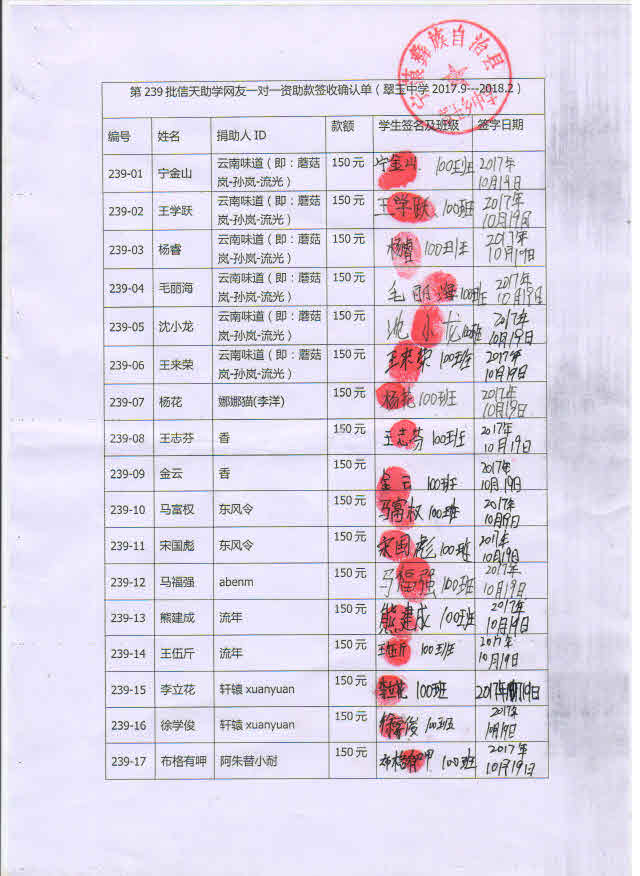 宁蒗彝族自治县
第 239 批信天助学网友一对一资助款签收确认单（翠玉中学 2017.9---2018.2）
编号 姓名 捐助人 ID 款额 学生签名及班级 签字日期
239-01 宁金山 云南味道（即：蘑菇 150 元 宁金山 100班 2017年
岚-孙岚-流光） 10月19日
239-02 王学跃 云南味道（即：蘑菇 150 元 王学跃 100班 2017年
岚-孙岚-流光） 10月19日
239-03 杨睿 云南味道（即：蘑菇 150 元 杨睿 100班 2017年
岚-孙岚-流光） 10月19日
239-04 毛丽海 云南味道（即：蘑菇 150 元 毛丽海 100班 2017年
岚-孙岚-流光） 10月19日
239-05 沈小龙 云南味道（即：蘑菇 150 元 沈小龙 100班 2017年
岚-孙岚-流光） 10月19日
239-06 王来荣 云南味道（即：蘑菇 150 元 王来荣 100班 2017年
岚-孙岚-流光） 10月19日
239-07 杨花 娜娜猫(李洋) 150 元 杨花 100班 2017年
10月19日
239-08 王志芬 香 150 元 王志芬 100班 2017年
10月19日
239-09 金云 香 150 元 金云 100班 2017年
10月19日
239-10 马富权 东风令 150 元 马富权 100班 2017年
10月19日
239-11 宋国彪 东风令 150 元 宋国彪 100班 2017年
10月19日
239-12 马福强 abenm 150 元 马福强 100班 2017年
10月19日
239-13 熊建成 流年 150 元 熊建成 100班 2017年
10月19日
239-14 王伍斤 流年 150 元 王伍斤 100班 2017年
10月19日
239-15 李立花 轩辕 xuanyuan 150 元 李立花 100班 2017年 19日
239-16 徐学俊 轩辕 xuanyuan 150 元 徐学俊 100班 2017年
239-17 布格有呷 阿朱替小耐 150 元 布格有呷 100班 2017年
10月19日